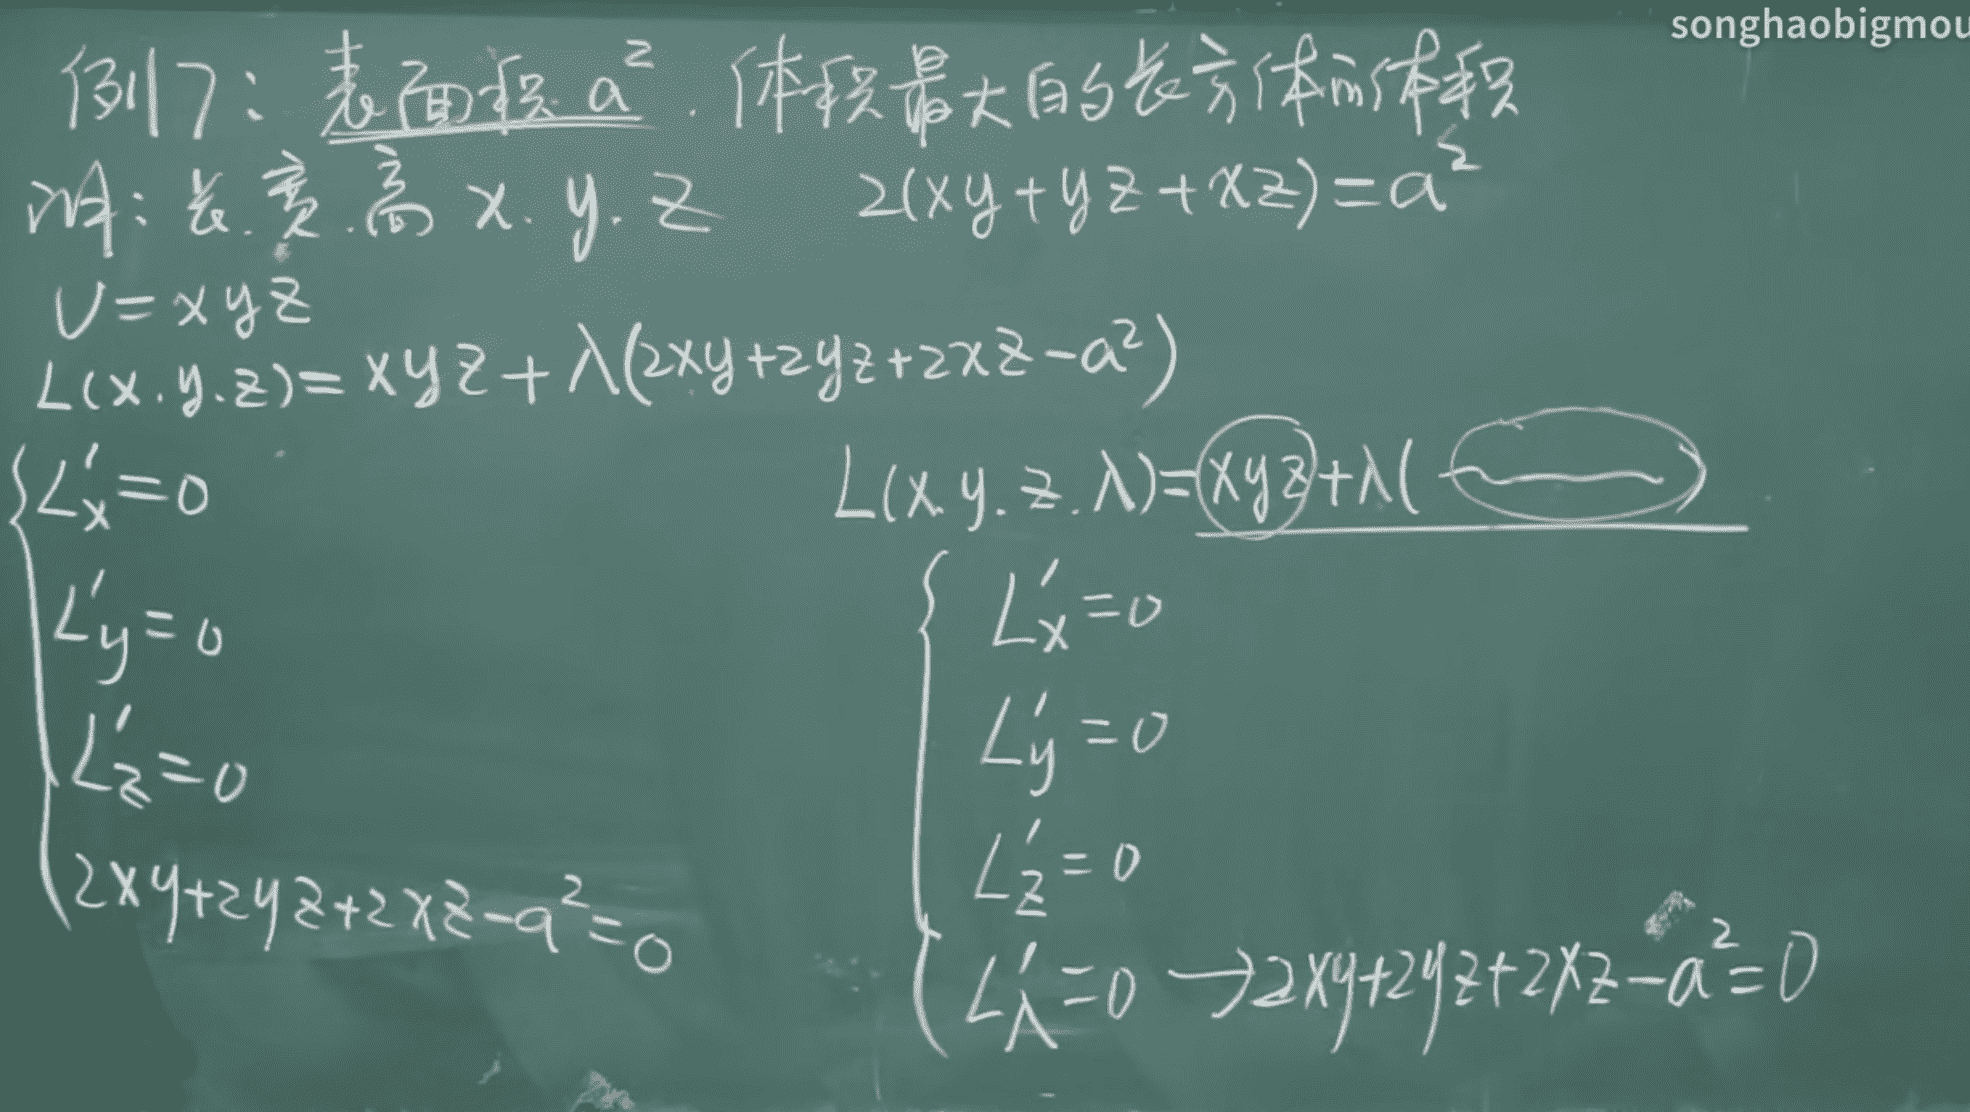 songhaobigmou
例7: 表面积 a². 体积最大的长方体的体积
解: 长.宽.高 x. y. z 2(xy+yz+xz)=a²
V=xyz
L(x.y.z)=xyz+λ(2xy+2yz+2xz-a²)
L(x.y.z.λ)=xyz+λ( )
L'x=0
L'y=0
L'z=0
2xy+2yz+2xz-a²=0
L'x=0
L'y=0
L'z=0
L'λ=0 →2xy+2yz+2xz-a²=0